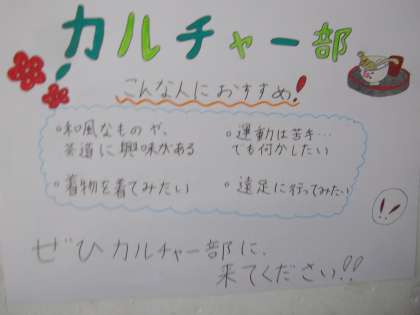 カルチャー部
こんな人におすすめ!
・和風なものや、
茶道に興味がある
・運動は苦手…
でも何かしたい
・着物を着てみたい
・遠足に行ってみたい
!!
ぜひカルチャー部に、
来てください!!